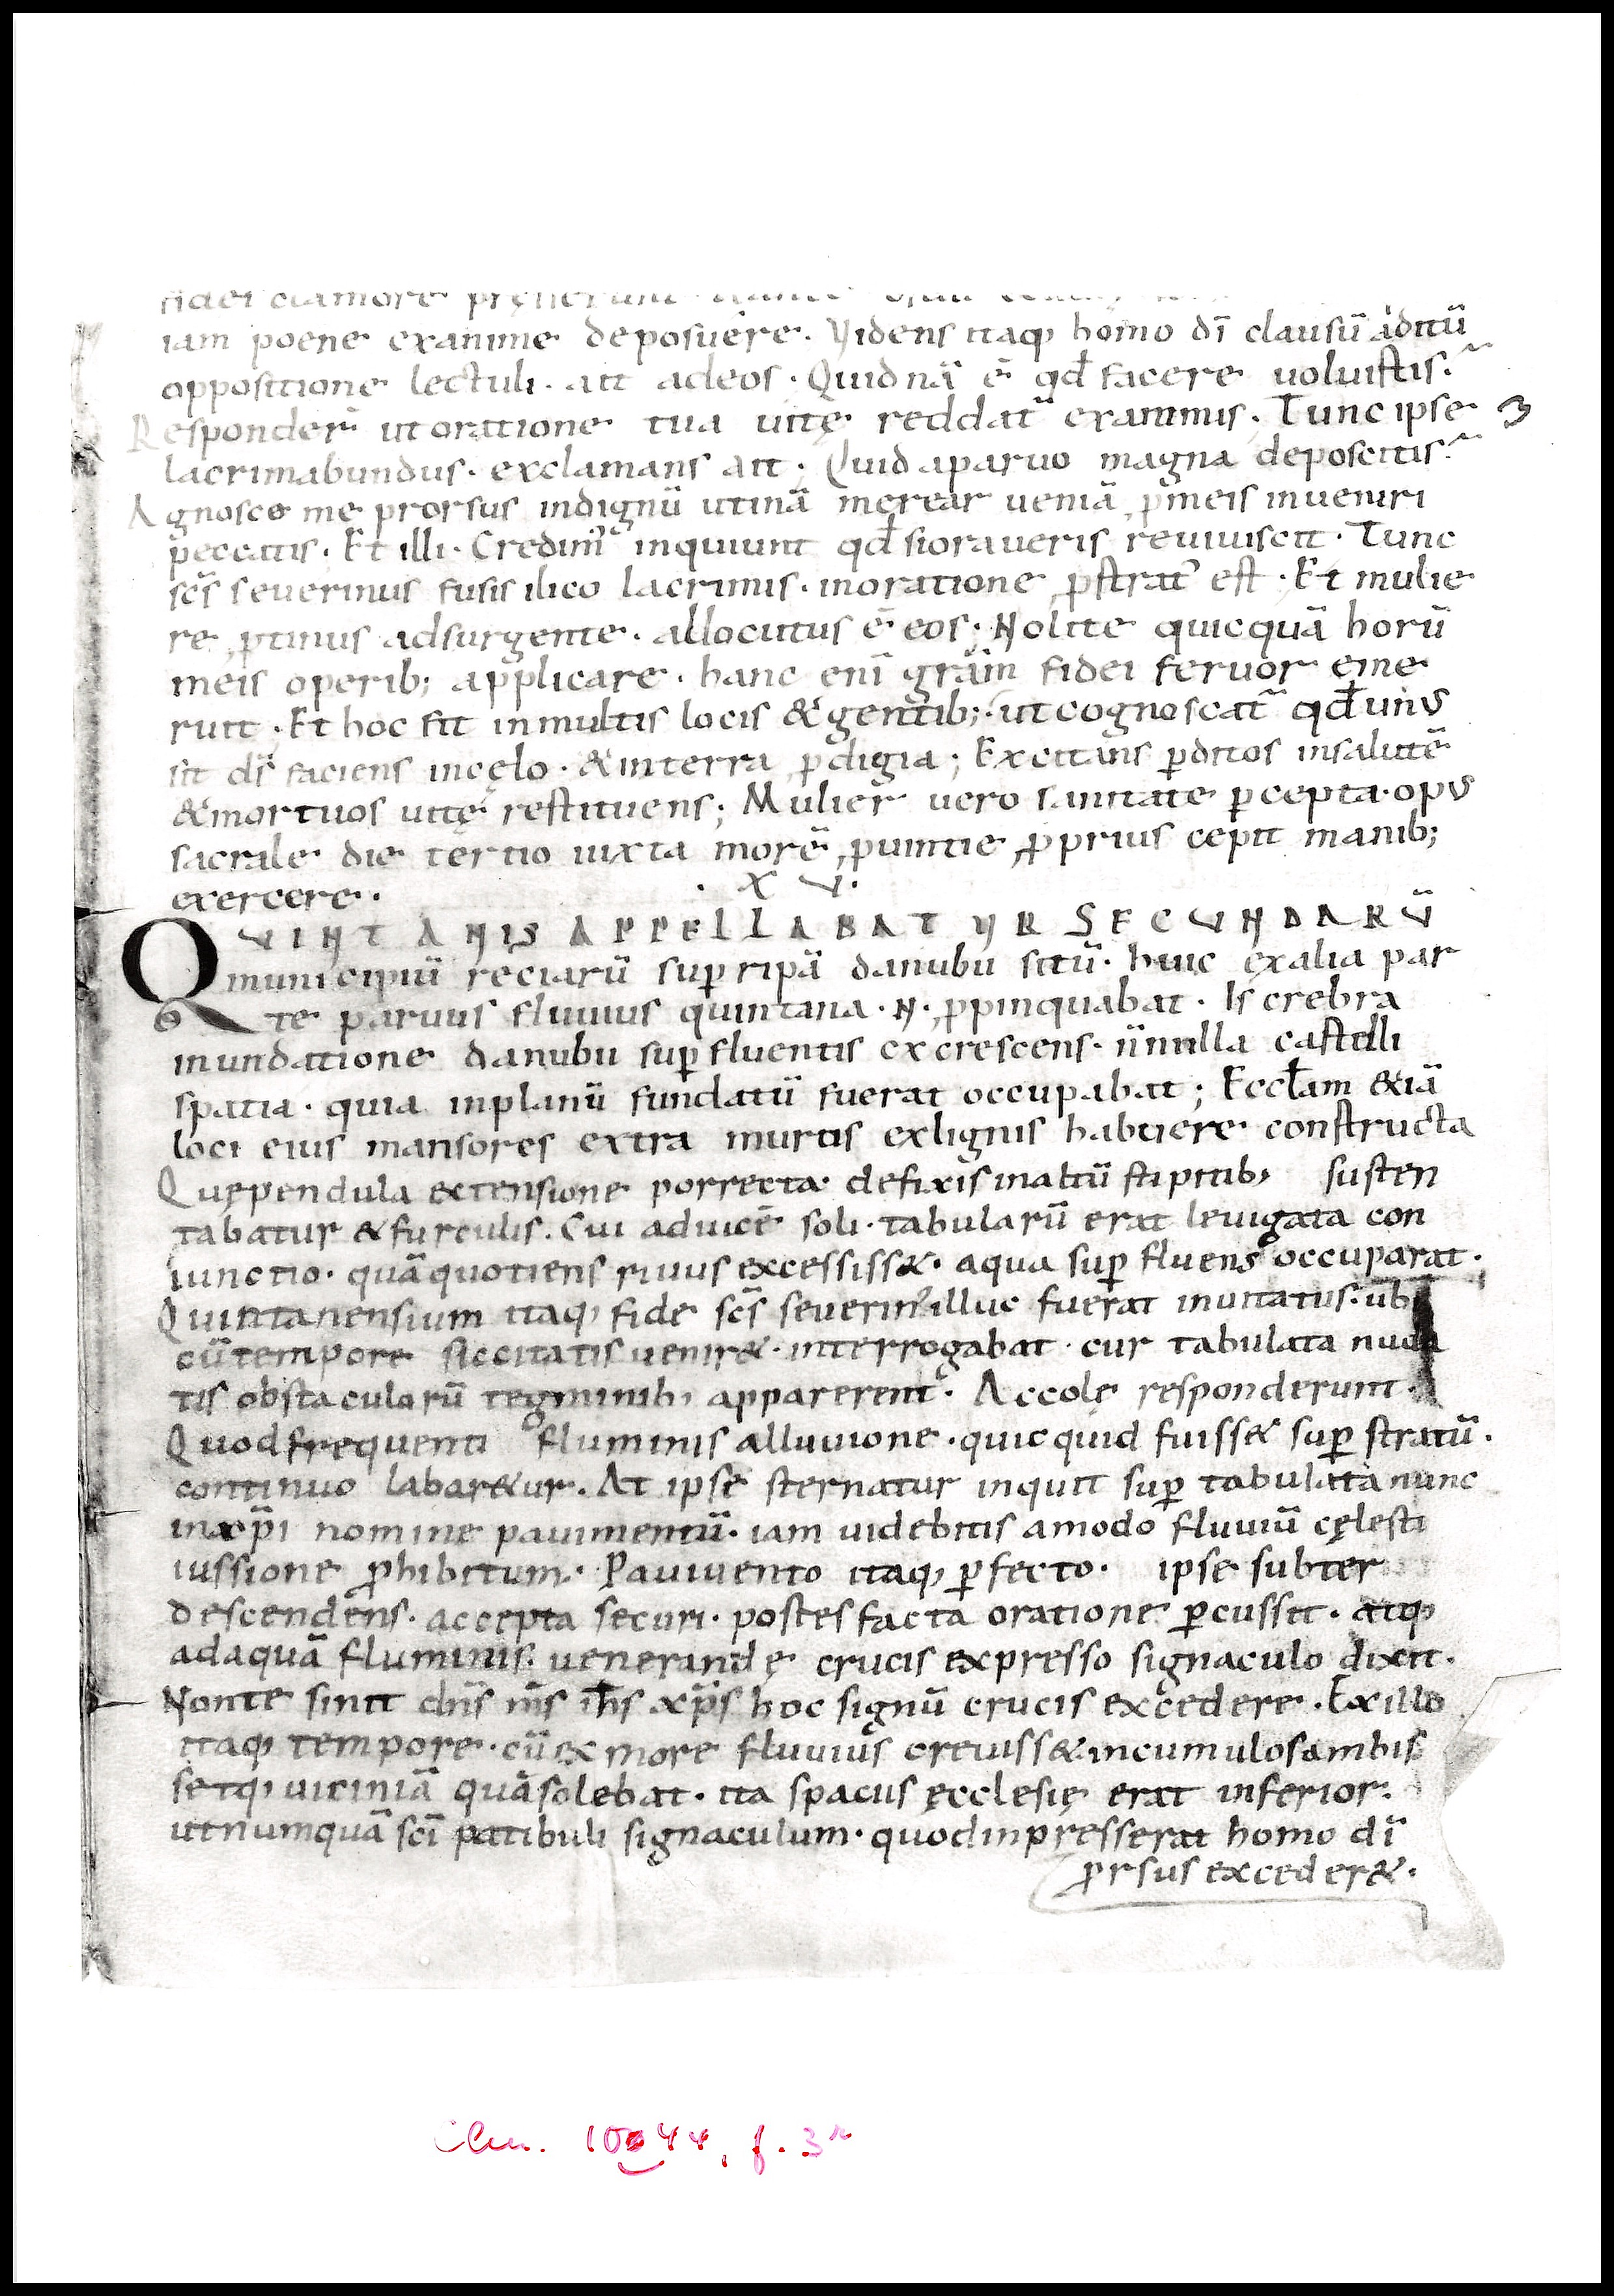 fidei clamore
iam poene exanime deposuere. Videns itaq; homo dī clausū aditū
oppositione lectuli. ait adeos. Quidnā ē qđ facere uoluistis.
Responder̄ ut oratione tua uitę reddat᷑ exanimis. Tunc ipse 3
lacrimabundus. exclamans ait. Quid aparuo magna deposcitis.
Agnosco me prorsus indignū utinā merear ueniā ꝓmeis inueniri
peccatis. Et illi. Credim᷑ inquiunt qđ sioraueris reuiuiscit. Tunc
scs̄ seuerinus fusis ilico lacrimis. inoratione ꝓstrat᷒ est. Et mulie
re ꝓtinus adsurgente. allocutus ē eos; Nolite quicquā horū
meis operib; applicare. hanc enī grām fidei feruor eme
ruit. Et hoc fit inmultis locis & gentib;. ut cognoscat᷑ qđ unus
sit ds̄ faciens incęlo. & interra ꝓdigia; Excitans ꝑditos insalutē
& mortuos uitę restituens; Mulier uero sanitate ꝑcepta. opus
sacrale die tertio iuxta morē ꝓuintie ꝓprius cepit manib;
exercere.
. XV.
QVINTANIS APPELLABATVR SECVNDARŪ
municipiū reciarū suꝑ ripā danubii sitū. huic exalia par
te paruus fluuius quintana .N. ꝓpinquabat. Is crebra
inundatione danubii suꝑfluentis excrescens. n̄nulla castelli
spatia. quia inplanū fundatū fuerat occupabat; Eccłam &iā
loci eius mansores extra muris exlignis habuere constructā
Quępendula extensione porrecta defixis inaltū stipitib; susten
tabatur & furculis. Cui aduicē soli. tabularū erat leuigata con
iunctio. quā quotiens riuus excessiss&. aqua suꝑfluens occuparat.
Quintanensium itaq; fide scs̄ seuerin᷒ illuc fuerat inuitatus. ubi
cū tempore siccitatis uenir&. interrogabat. cur tabulata nuda
tis obstaculorū tegminib; apparerent. Accolę responderunt.
Quod frequenti fluminis alluuione. quicquid fuiss& suꝑ stratū.
continuo labar&ur. At ipse sternatur inquit suꝑ tabulata nunc
in xp̄i nomine pauimentū. iam uidebitis amodo fluuiū cęlesti
iussione ꝓhibitum. Pauiuento itaq; ꝑfecto. ipse subter
descendens. accepta securi. postes facta oratione ꝑcussit. atq;
adaquā fluminis. uenerandę crucis expresso signaculo dixit.
Nonte sinit dn̄s n̄s ih̄s xp̄s hoc signū crucis excedere. Exillo
itaq; tempore. cū ex more fluuius creuiss& incumulos ambis
setq; uiciniā quā solebat. ita spacus ęcclesię erat inferior.
ut numquā scī patibuli signaculum. quod inpresserat homo dī
ꝓrsus exceder&.
Clm. 10044, f. 3r